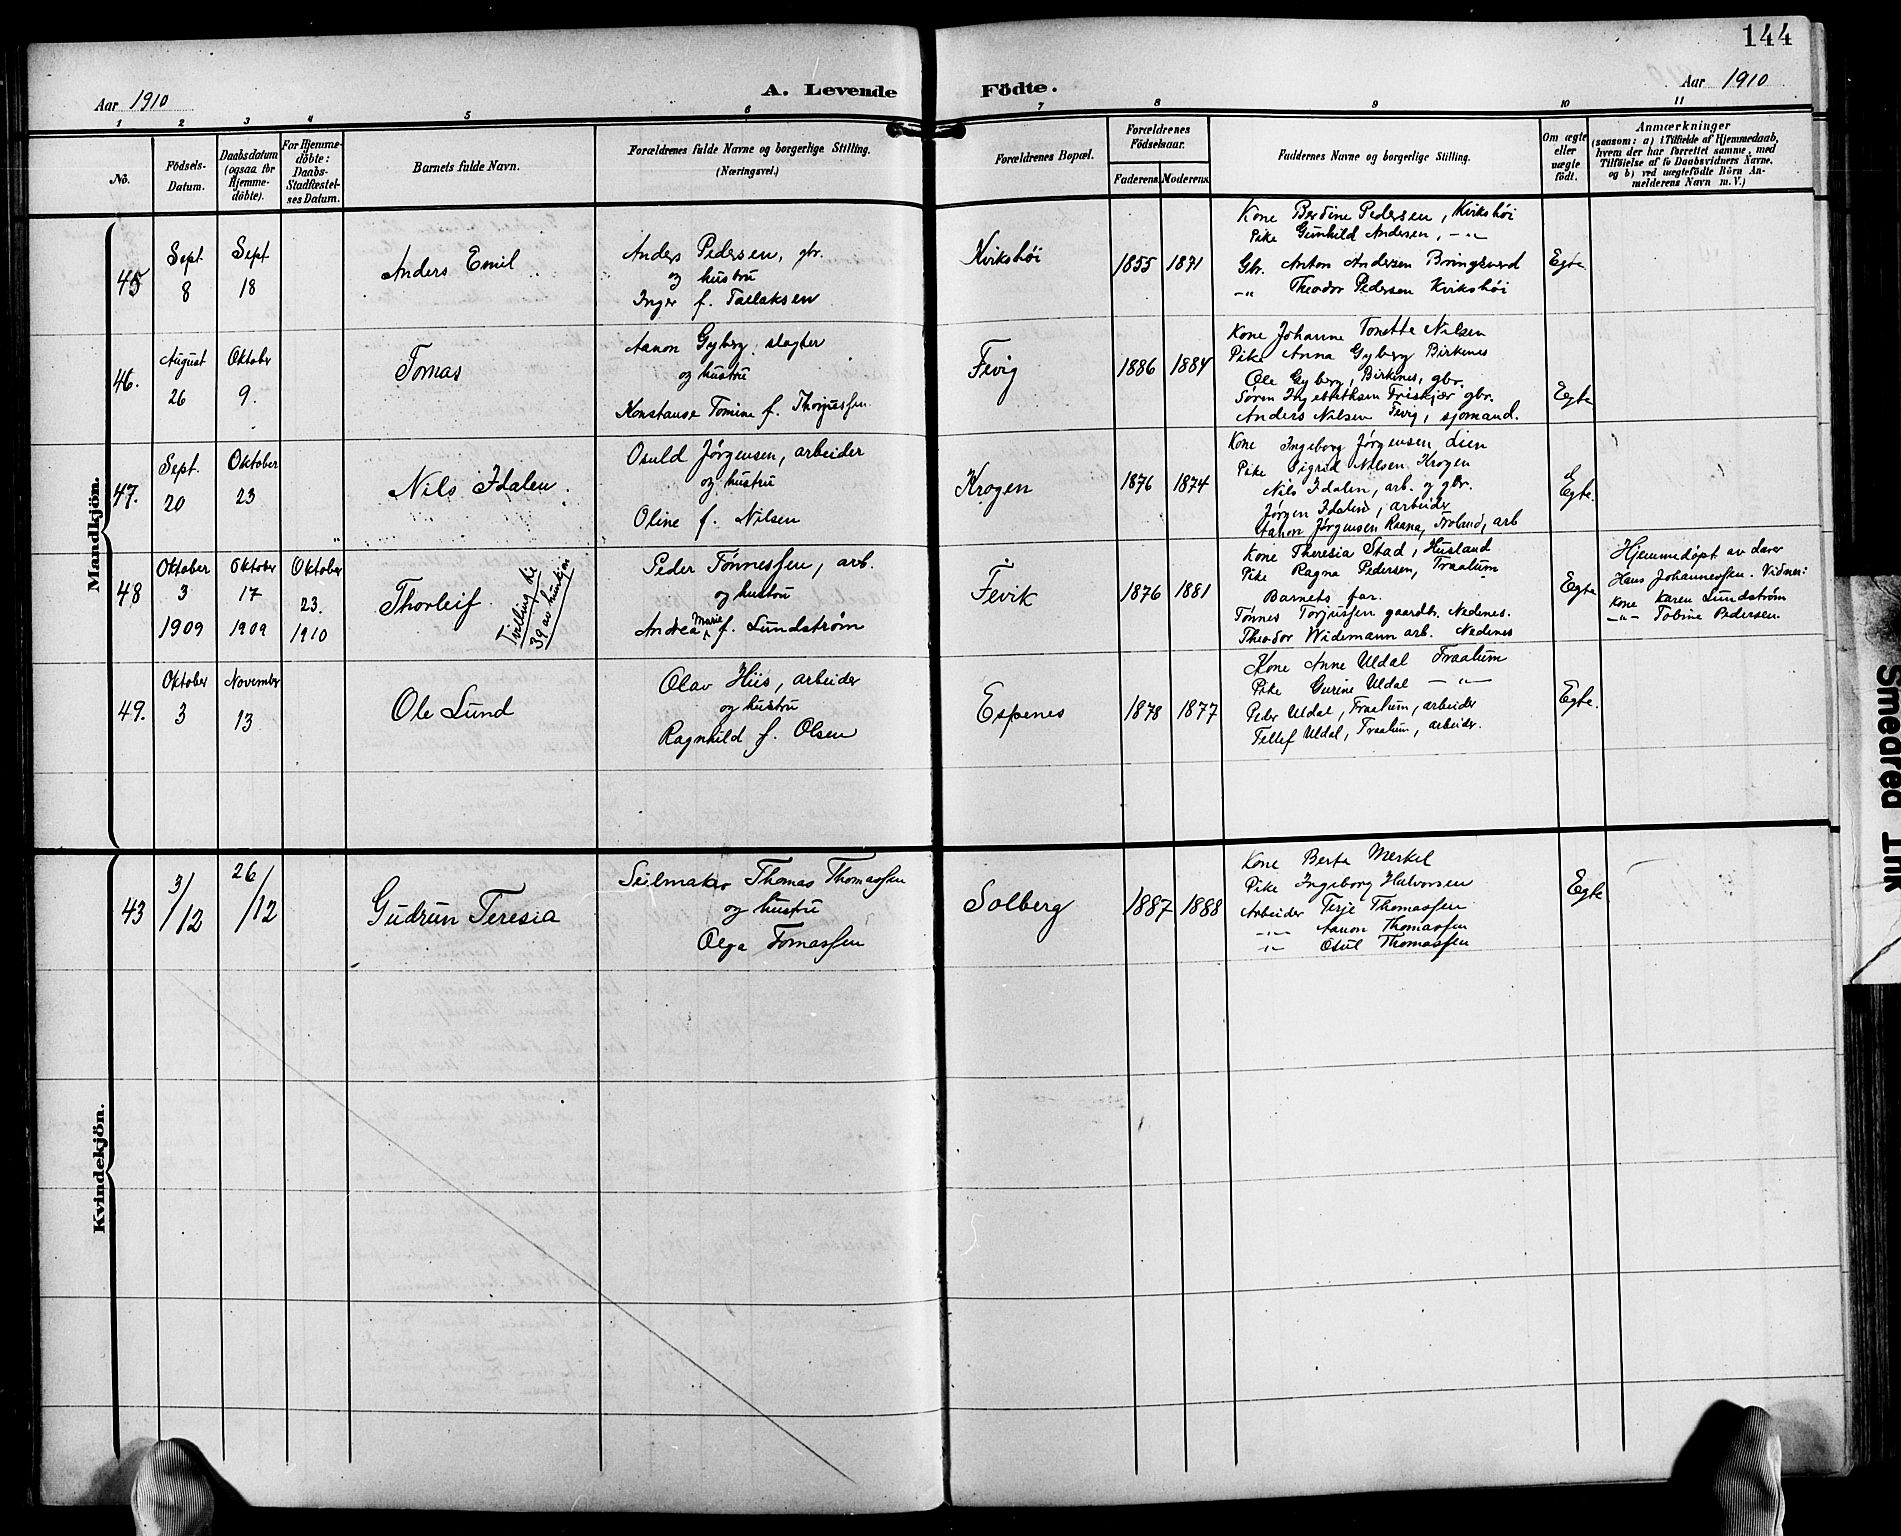 144
Aar 1910
A. Levende Födte.
Aar 1910
1 2 3 4 5 6 7 8 9 10 11
No.
Födsels-
Datum.
Daabsdatum
(ogsaa for
Hjemme-
döbte).
For Hjemme-
döbte:
Daabs-
Stadfæstel-
ses Datum.
Barnets fulde Navn.
Forældrenes fulde Navne og borgerlige Stilling.
(Næringsvei.)
Forældrenes Bopæl.
Forældrenes
Födselsaar.
Faderens. Moderens.
Faddernes Navne og borgerlige Stilling.
Om ægte
eller
uægte
födt.
Anmærkninger
(saasom: a) i Tilfælde af Hjemmedaab,
hvem der har forrettet samme, med
Tilföielse af to Daabsvidners Navne,
og b) ved uegtefödte Börn An-
melderens Navn m. V.)
Mandkjön.
45
Sept.
8
Sept
18
Anders Emil
Anders Pedersen, gbr.
og hustru
Inger f. Tallaksen
Kvikshöi
1855 1871
Kone Berdine Pedersen, Kvikshöi
Pike Gunhild Andersen, -"-
Gbr. Anton Andersen Bringsverd
-"- Theodor Pedersen Kvikshöi
Egte
46.
August
26
Oktober
9.
Tomas
Aanon Gyberg, slagter
og hustru
Konstanse Tomine f. Thorjussen
Fevig
1886 1884
Kone Johanne Tonette Nilsen
Pike Anna Gyberg Birkenes
Ole Gyberg, Birkenes, gbr.
Søren Friskjær gbr.
Anders Nilsen Fevig, sjomand.
Egte
47.
Sept.
20
Oktober
23
Nils Idalen
Osuld Jørgensen, arbeider
og hustru
Oline f. Nilsen
Krogen
1876 1874
Kone Ingeborg Jørgensen Lien
Pike Sigrid Nilsen Krogen
Nils Idalen, arb. og gbr.
Jørgen Idalen, arbeider
Aanon Jørgensen Raana, Froland, arb
Egte.
48
Oktober
3
1909
Oktober
17
1909
Oktober
23.
1910
Thorleif
Tvilling til
39 av hunkjøn
Peder Tønnessen, arb.
og hustru
Andrea Marie f. Lundstrøm
Fevik
1876 1881
Kone Theresia Stad, Husland
Pike Ragna Pedersen, Fraalum
Barnets far.
Tønnes Torjussen gaardbr. Nedenes.
Theodor Widemann arb. Nedenes
Egte
Hjemmedøpt av
Hans Johannessen. Vidner:
Kone Karen Lundstrøm
-"- Tobine Pedersen.
49.
Oktober
3
November
13
Ole Lund
Olav Hiis, arbeider
og hustru
Ragnhild f. Olsen
Espenes
1878 1877
Kone Anne Uldal Fraalum
Pike Gurine Uldal -"-
Peder Uldal, Fraalum, arbeider
Tellef Uldal, Fraalum, arbeider.
Egte.
Kvindekjön.
43
3/12
26/12
Gudrun Teresia
Seilmaker Thomas Thomassen
og hustru
Olga Tomassen
Solberg
1887 1888
Kone Berta Merkel
Pike Ingeborg Halvorsen
Arbeider Terje Thomassen
-"- Aanon Thomassen
-"- Osul Thomassen
Egte
Smeared Ink